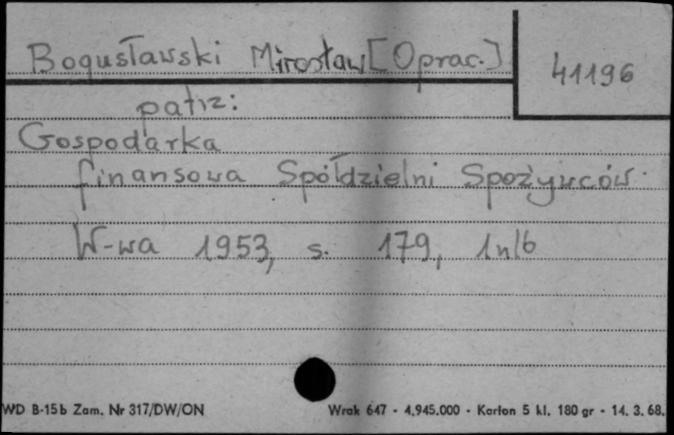 Bogusławski Mirosław [Oprac.]
41196
patrz:
Gospodarka
finansowa Spółdzielni Spożywców.
W-wa 1953, s. 179, 1nlb
WD B-15b Zam. Nr 317/DW/ON
Wrak 647 - 4.945.000 - Karton 5 kl. 180 gr - 14. 3. 68.